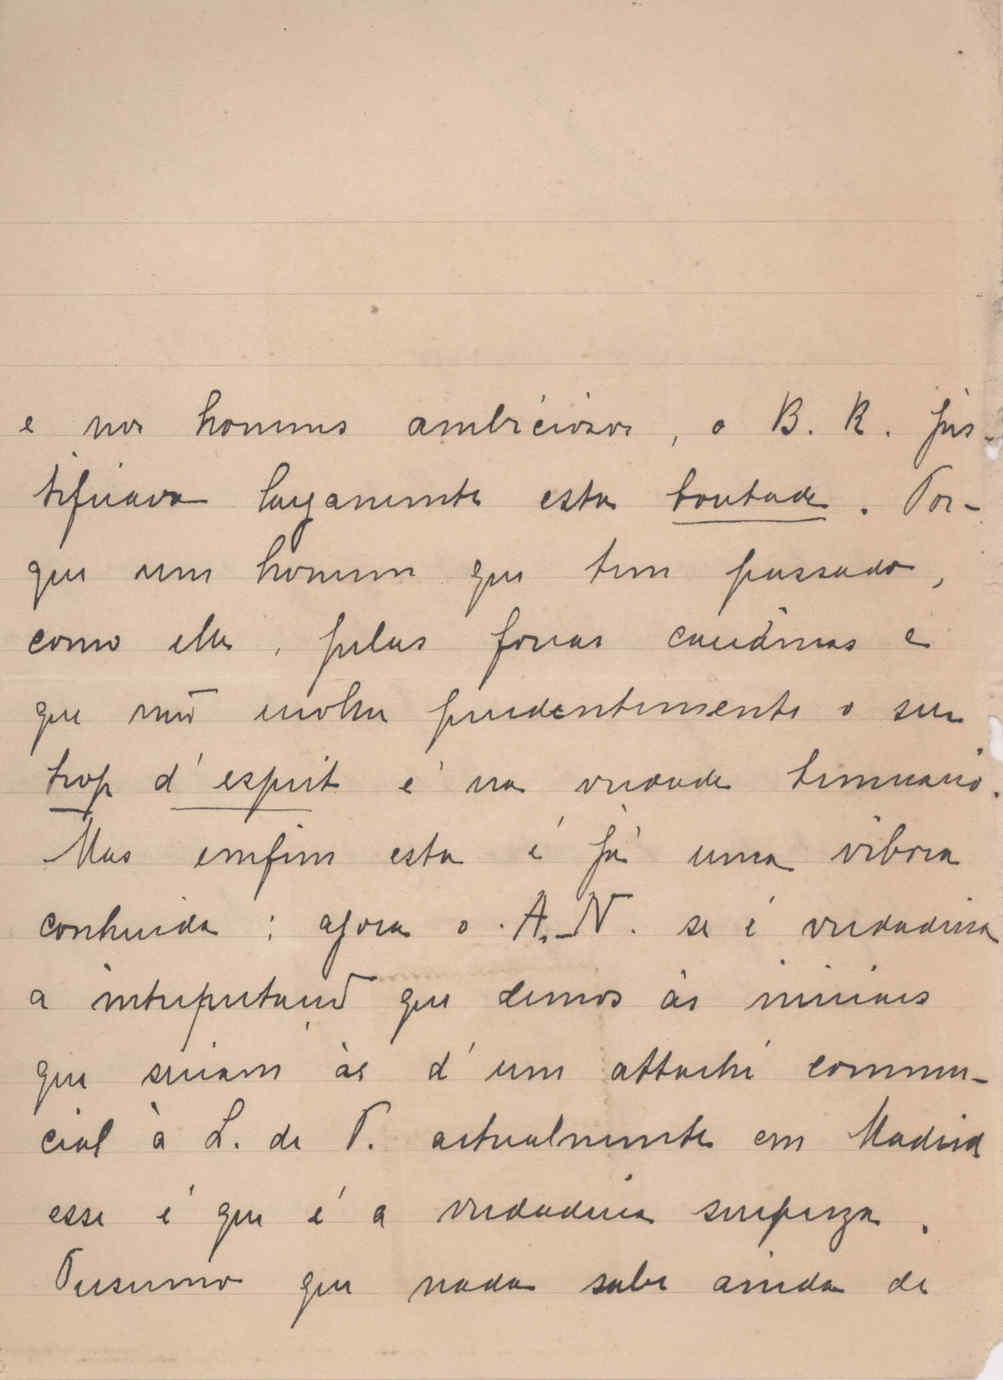 e nos homens ambiciosos, o B. R. jus-
tificava largamente esta boutade. Por-
que um homem que tem passado,
como elle, pelas forcas caudinas e
que não encolhe prudentemente o seu
trop d'esprit é na verdade temerario.
Mas emfim esta é já uma vibora
conhecida; agora o A. N. se é verdadeira
a interpretação que demos às iniciaes
que seriam as d'um attaché commer-
cial à L. de P. actualmente em Madrid
esse é que é a verdadeira surpreza.
Presumo que nada sabe ainda de